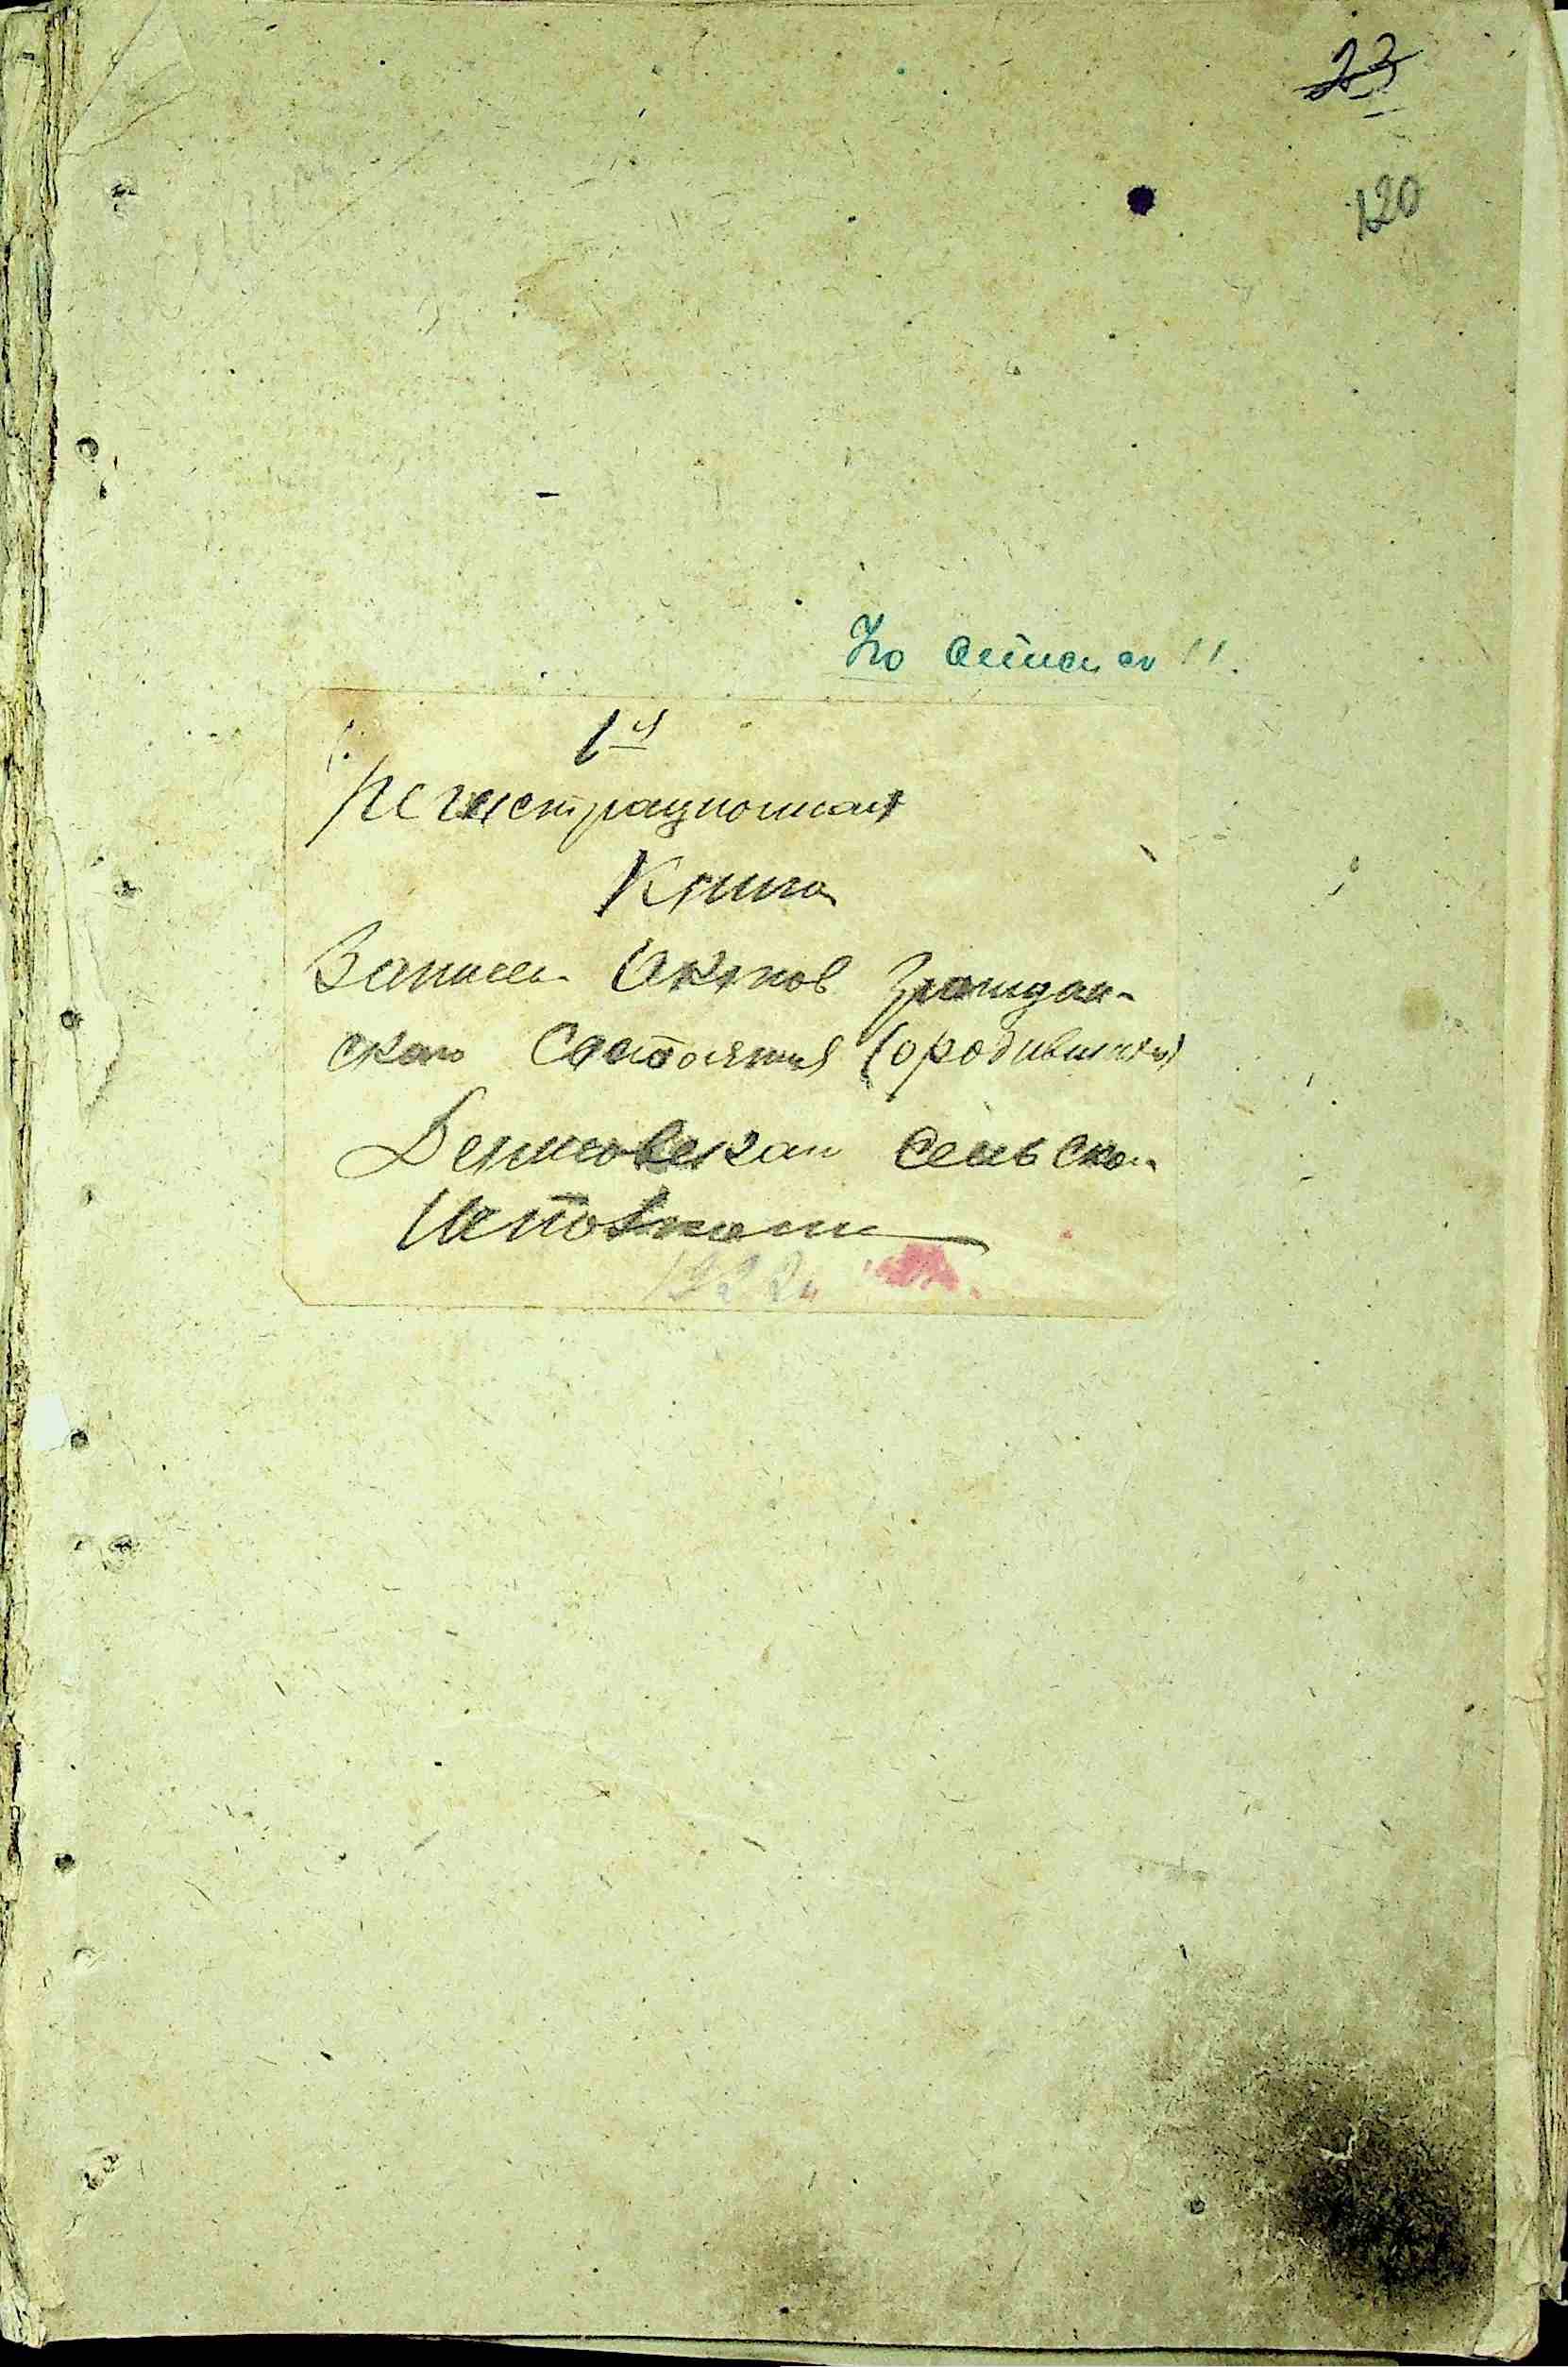 23
120
По описи 11.
1я
Регистрационная
Книга
Записи Актов Граждан-
ского Состояния (о родившихся)
сельско-
Исполкома
1922